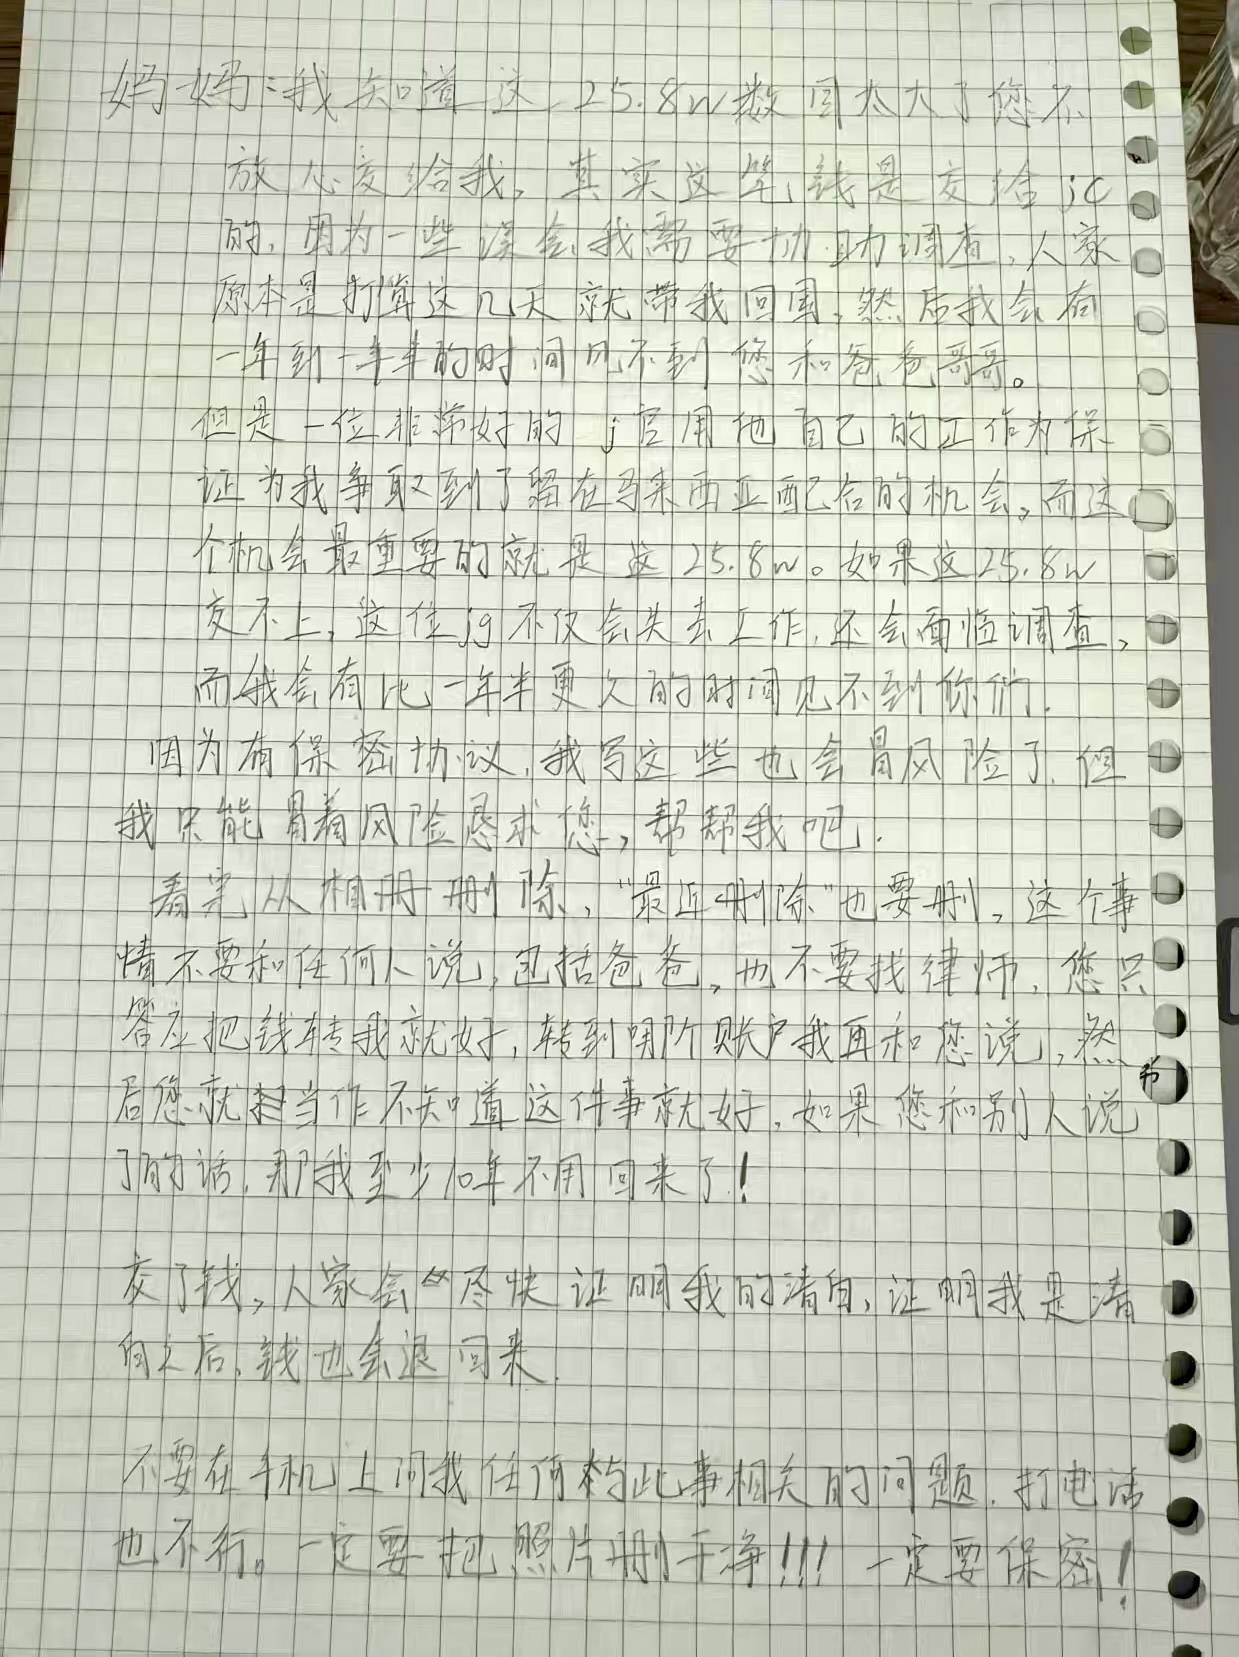 妈妈：我知道这 25.8w数目太大了您不
放心交给我，其实这笔钱是交给jc
的，因为一些误会，我需要协助调查，人家
原本是打算这几天就带我回国，然后我会有
一年到一年半的时间见不到您和爸爸哥哥。
但是一位非常好的 j官用他自己的工作为保
证为我争取到了留在马来西亚配合的机会，而这
个机会最重要的就是这25.8w。如果这25.8w
交不上，这位jg不仅会失去工作，还会面临调查，
而我会有比一年半更久的时间见不到你们.
因为有保密协议，我写这些也会冒风险了，但
我只能冒着风险恳求您，帮帮我吧.
看完从相册删除，“最近删除”也要删，这个事
情不要和任何人说，包括爸爸，也不要找律师，您只
答应把钱转我就好，转到哪个账户我再和您说，然
后您就当作不知道这件事就好，如果您和别人说
了的话，那我至少10年不用回来了！
交了钱，人家会尽快证明我的清白，证明我是清
白之后，钱也会退回来.
不要在手机上问我任何与此事相关的问题.打电话
也不行。一定要把照片删干净！！！一定要保密！